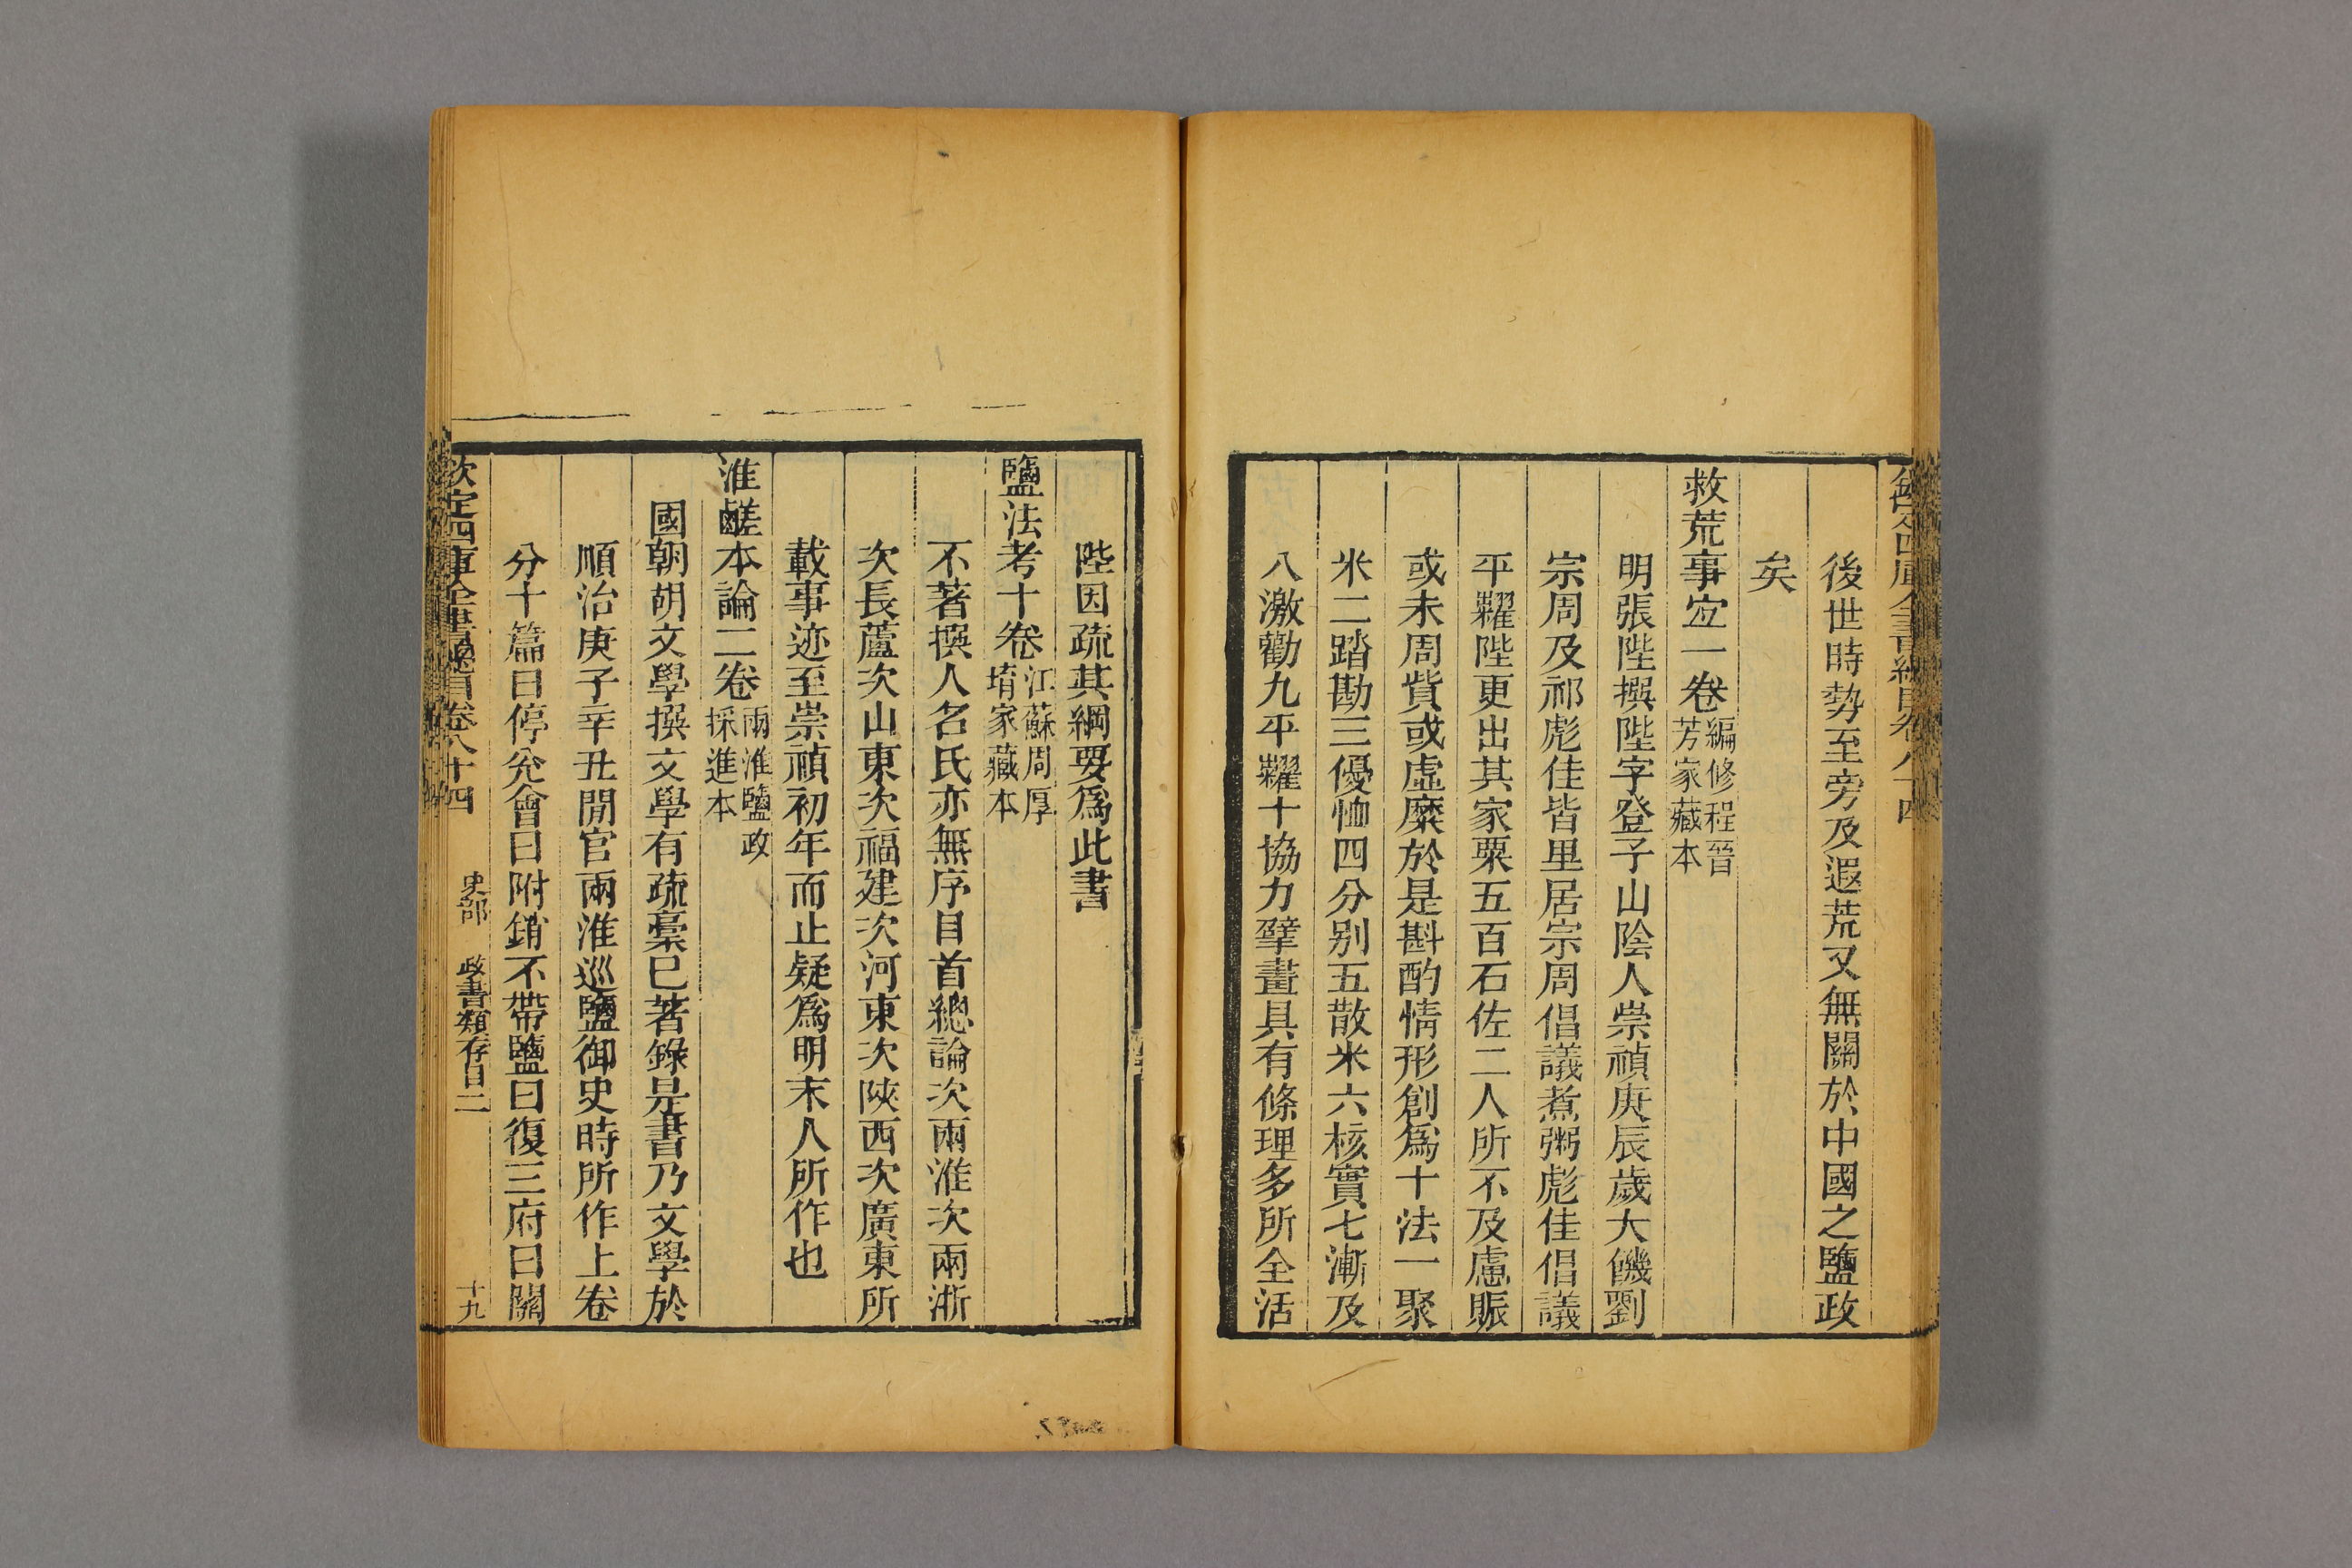 欽定四庫全書總目卷八十四
後世時勢至旁及遐荒又無關於中國之鹽政
矣
救荒事宐一卷編修程晉
芳家藏本
明張陛撰陛字登子山陰人崇禎庚辰歲大饑劉
宗周及祁彪佳皆里居宗周倡議煮粥彪佳倡議
平糶陛更出其家粟五百石佐二人所不及慮賑
或未周貲或虛縻於是斟酌情形創爲十法一聚
米二踏勘三優恤四分別五散米六核實七漸及
八激勸九平糶十協力擘畫具有條理多所全活
陛因疏其綱要爲此書
鹽法考十卷江蘇周厚
堉家藏本
不著撰人名氏亦無序目首總論次兩淮次兩浙
次長蘆次山東次福建次河東次陝西次廣東所
載事迹至崇禎初年而止疑爲明末人所作也
淮鹺本論二卷兩淮鹽政
採進本
國朝胡文學撰文學有疏稾已著錄是書乃文學於
順治庚子辛丑閒官兩淮巡鹽御史時所作上卷
分十篇曰停兊會曰附銷不帶鹽曰復三府曰關
欽定四庫全書總目卷八十四 史部 政書類存目二 十九